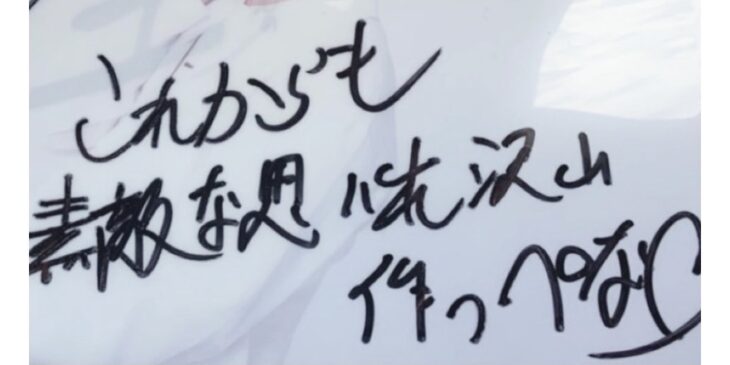 これからも
素敵な思い出沢山
作っぺな